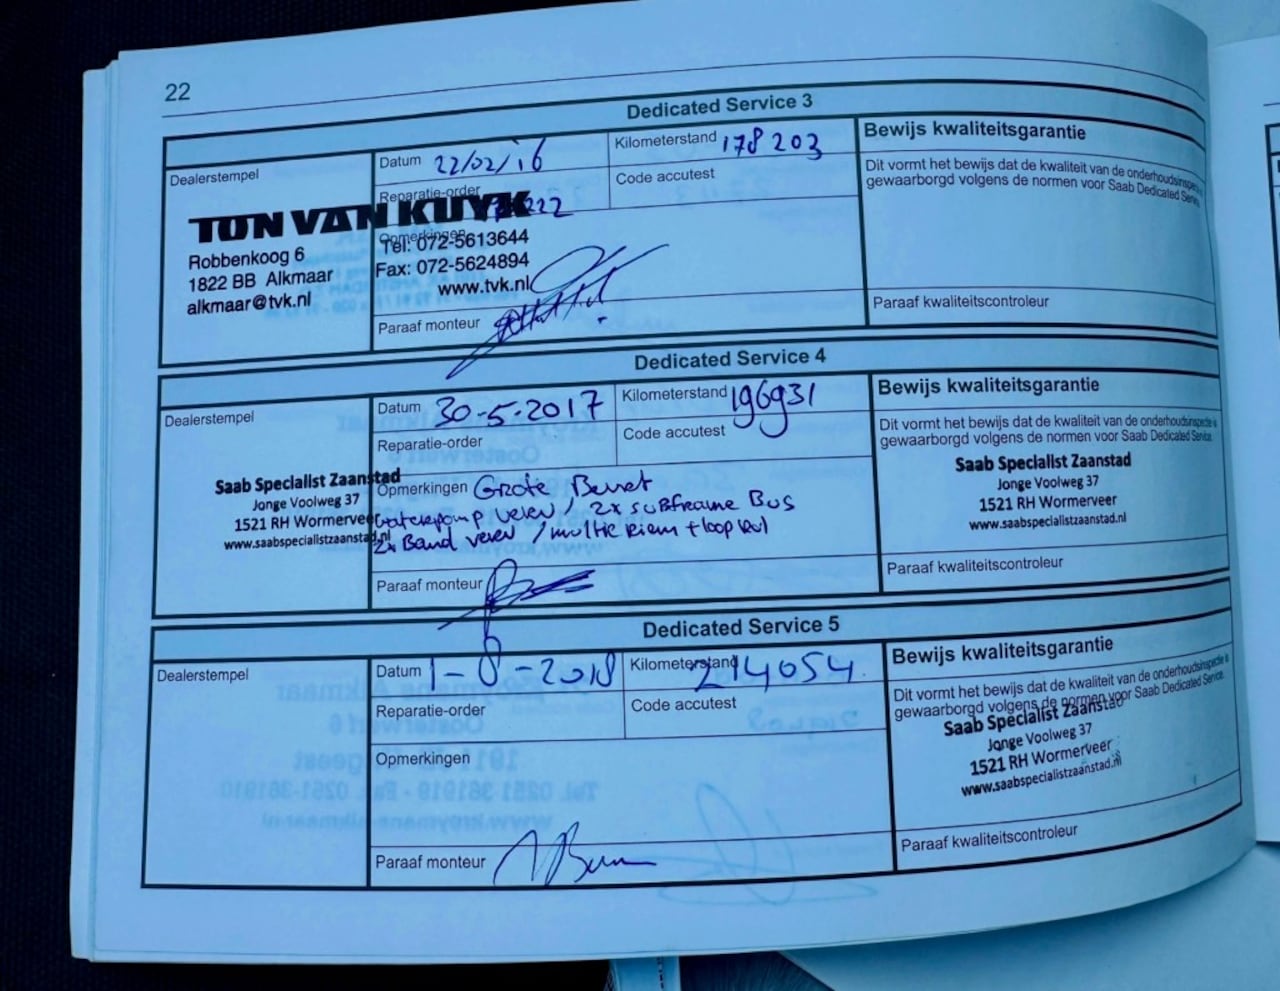 22
Dedicated Service 3
Dealerstempel
Datum 22/02/'16
Kilometerstand 178 203
Bewijs kwaliteitsgarantie
Reparatie-order 222
Code accutest
Dit vormt het bewijs dat de kwaliteit van de onderhoudsinspectie is
gewaarborgd volgens de normen voor Saab Dedicated Service.
TON VAN KUYK
Robbenkoog 6
1822 BB Alkmaar
alkmaar@tvk.nl
Opmerkingen
Tel: 072-5613644
Fax: 072-5624894
www.tvk.nl
Paraaf monteur
Paraaf kwaliteitscontroleur
Dedicated Service 4
Dealerstempel
Datum 30-5-2017
Kilometerstand 196931
Bewijs kwaliteitsgarantie
Reparatie-order
Code accutest
Dit vormt het bewijs dat de kwaliteit van de onderhoudsinspectie is
gewaarborgd volgens de normen voor Saab Dedicated Service.
Saab Specialist Zaanstad
Jonge Voolweg 37
1521 RH Wormerveer
www.saabspecialistzaanstad.nl
Opmerkingen Grote Beurt
Waterpomp veren / 2x subframe Bus
2x Band veren / multie riem + loop rol
Saab Specialist Zaanstad
Jonge Voolweg 37
1521 RH Wormerveer
www.saabspecialistzaanstad.nl
Paraaf monteur
Paraaf kwaliteitscontroleur
Dedicated Service 5
Dealerstempel
Datum 1-8-2018
Kilometerstand 214054
Bewijs kwaliteitsgarantie
Reparatie-order
Code accutest
Dit vormt het bewijs dat de kwaliteit van de onderhoudsinspectie is
gewaarborgd volgens de normen voor Saab Dedicated Service.
Opmerkingen
Saab Specialist Zaanstad
Jonge Voolweg 37
1521 RH Wormerveer
www.saabspecialistzaanstad.nl
Paraaf monteur
Paraaf kwaliteitscontroleur